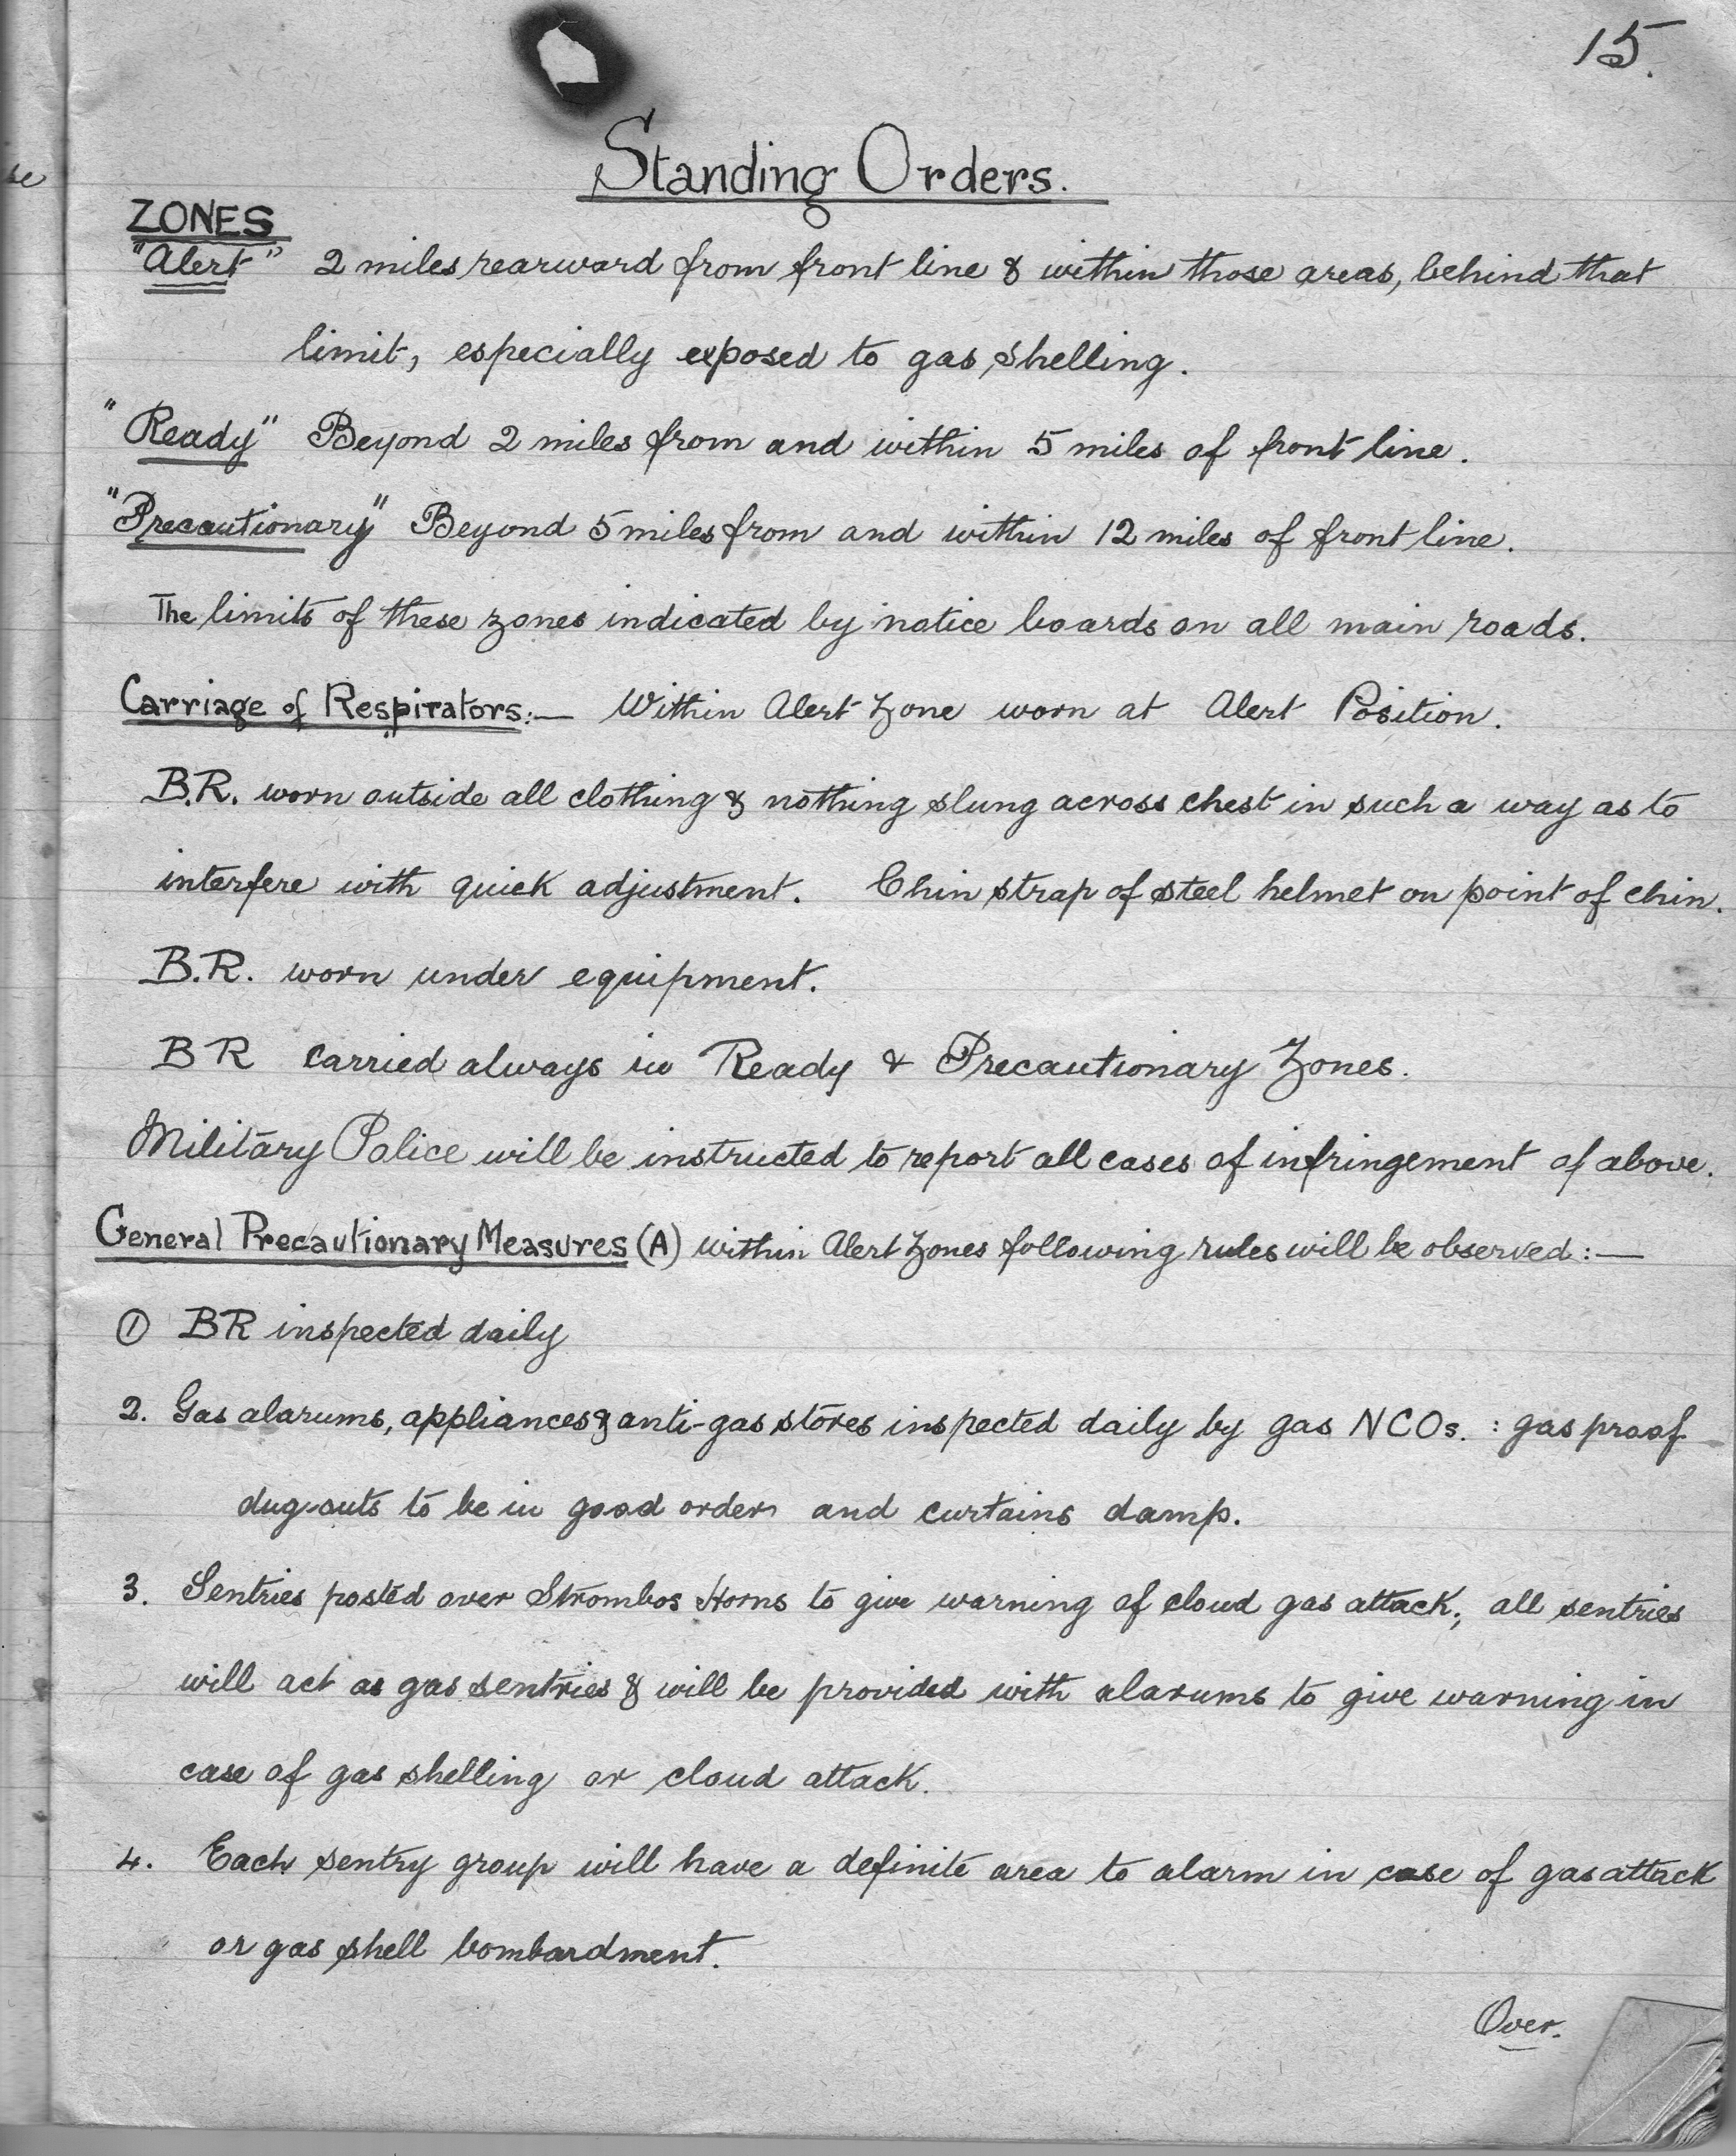 15.
se
Standing Orders.
ZONES
"Alert" 2 miles rearward from front line & within those areas, behind that
limit, especially exposed to gas shelling.
"Ready" Beyond 2 miles from and within 5 miles of front line.
"Precautionary" Beyond 5 miles from and within 12 miles of front line.
The limits of these zones indicated by notice boards on all main roads.
Carriage of Respirators:— Within Alert Zone worn at Alert Position.
B.R. worn outside all clothing & nothing slung across chest in such a way as to
interfere with quick adjustment. Chin strap of steel helmet on point of chin.
B.R. worn under equipment.
BR carried always in Ready & Precautionary Zones.
Military Police will be instructed to report all cases of infringement of above.
General Precautionary Measures (A) within Alert Zones following rules will be observed:—
① BR inspected daily
2. Gas alarums, appliances & anti-gas stores inspected daily by gas NCOs. : gas proof
dug-outs to be in good order and curtains damp.
3. Sentries posted over Strombos Horns to give warning of cloud gas attack; all sentries
will act as gas sentries & will be provided with alarums to give warning in
case of gas shelling or cloud attack.
4. Each sentry group will have a definite area to alarm in case of gas attack
or gas shell bombardment.
Over.